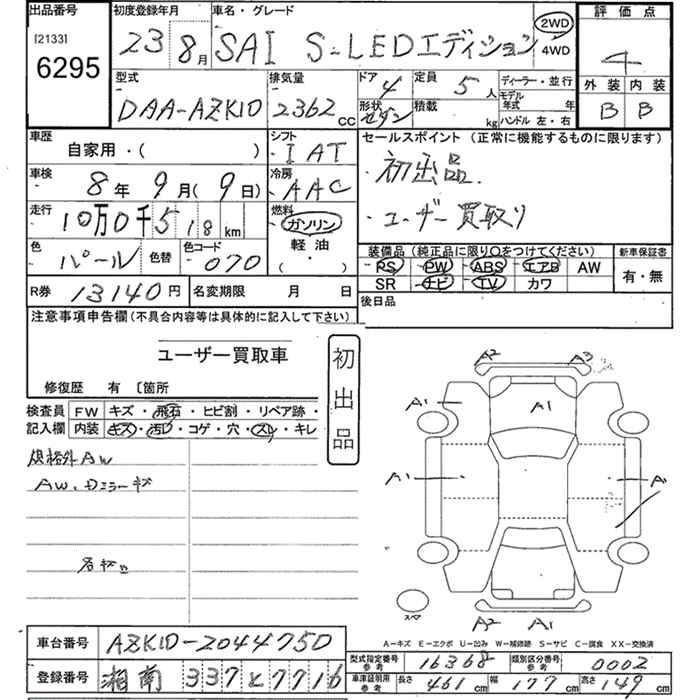 出品番号 初度登録年月 車名・グレード 評価点
[2133] 6295 23 8月 SAI S-LEDエディション 2WD 4WD 4
型式 排気量 ドア 4 定員 5人 ディーラー・並行 外装 内装
DAA-AZK10 2362 CC 形状 セダン 積載 kg モデル年式 年 ハンドル 左・右 B B
車歴 シフト セールスポイント (正常に機能するものに限ります)
自家用・( ) IAT ・初出品.
車検 8年 9月(9日) 冷房 AAC
走行 10万0千518km 燃料 ガソリン 軽油 ( ・ ) ・ユーザー買取り
色 パール 色替 色コード 070 装備品 (純正品に限り○をつけてください) 新車保証書
PS PW ABS エアB AW 有・無
SR ナビ TV カワ
R券 13140円 名変期限 月 日 後日品
注意事項申告欄(不具合内容等は具体的に記入して下さい)
ユーザー買取車
初出品
修復歴 有 〔箇所
検査員 FW キズ・飛石・ヒビ割・リペア跡・
記入欄 内装 キズ・汚レ・コゲ・穴・スレ・キレ
規格外AW
AW、Dミラーキズ
A2 A3
A1 A1
A1 A
スペア
A2 A1
A-キズ E-エクボ U-凹み W-補修跡 S-サビ C-腐食 XX-交換済
車台番号 AZK10-2044750
型式指定番号 参考 16368 類別区分番号 参考 0002
登録番号 湘南 337 と 7716
車庫証明用 参考 長さ 461cm 幅 177cm 高さ 149cm